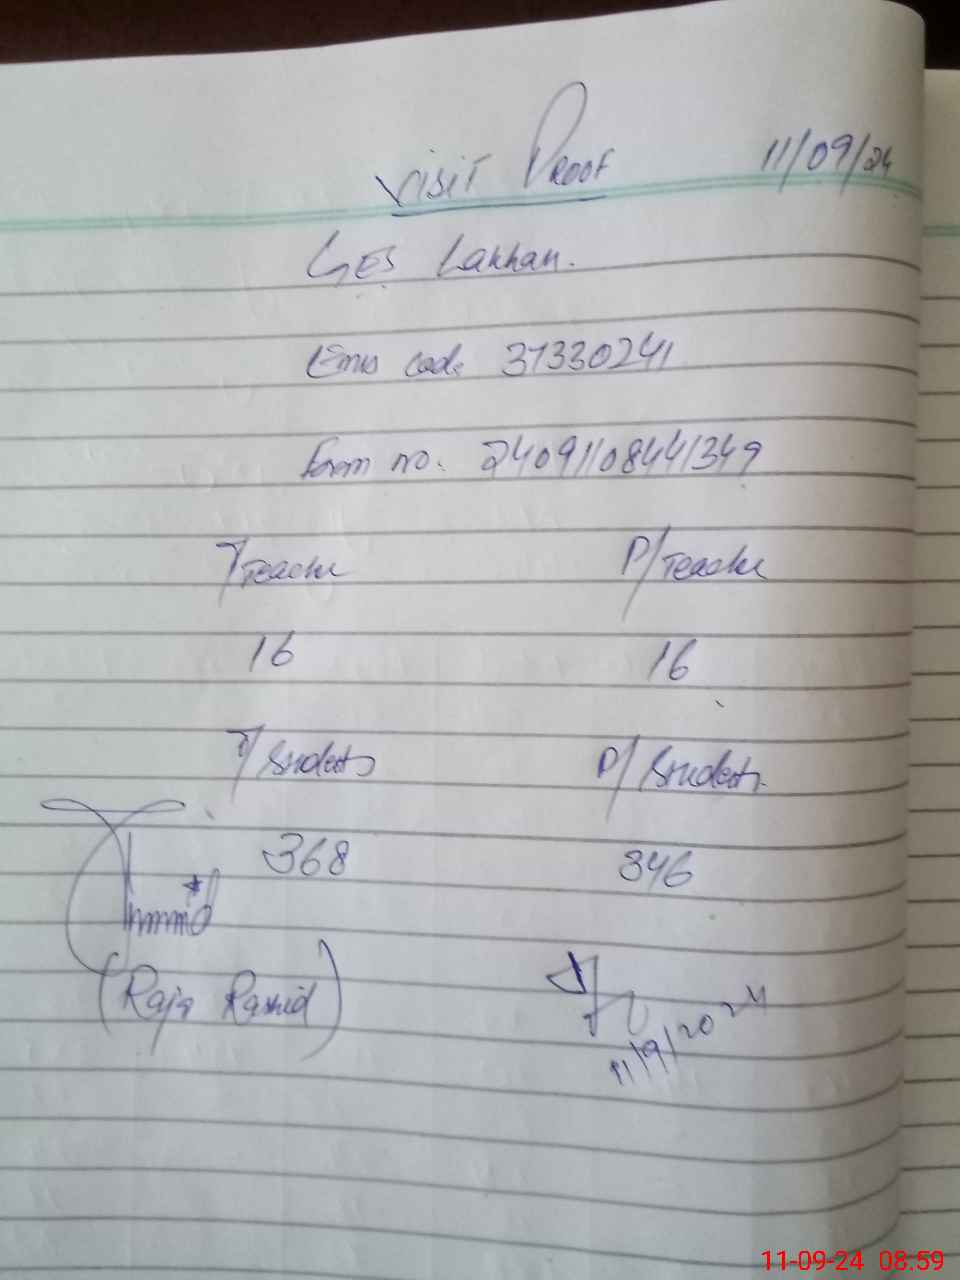 Visit Proof 11/09/24
GES Lakhan.
Emis code 37330241
Form no. 24091108441349
T/Teacher P/Teacher
16 16
T/Students P/Students
368 346
(Raja Rashid)
11/9/2024
11-09-24 08:59